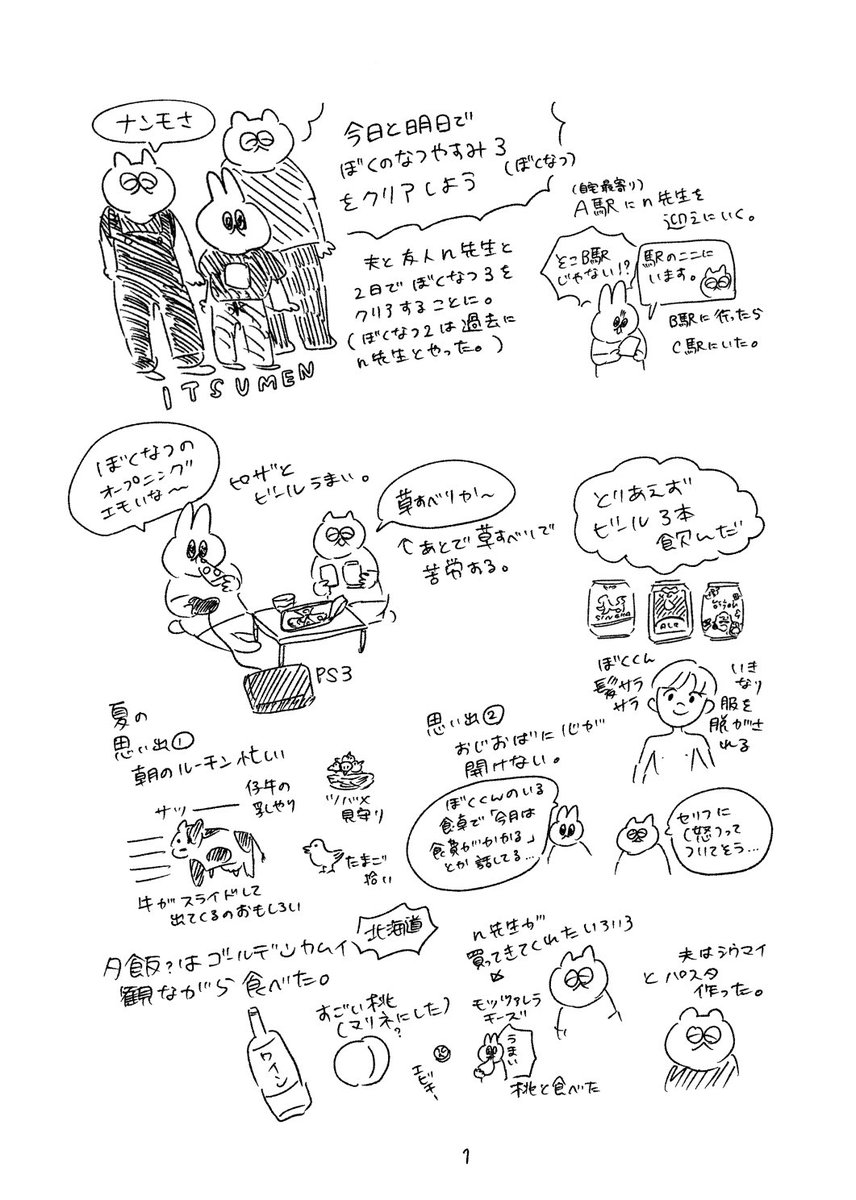 ナンモさ
今日と明日で
ぼくのなつやすみ3
(ぼくなつ)
をクリアしよう
夫と友人n先生と
2日でぼくなつ3を
クリアすることに。
(ぼくなつ2は過去に
n先生とやった。)
ITSUMEN
(自宅最寄り)
A駅にn先生を
迎えにいく。
そこB駅
じゃない!?
駅のここに
います。
B駅に行ったら
C駅にいた。
ぼくなつの
オープニング
エモいな〜
ピザと
ビールうまい。
草すべりか〜
↑あとで草すべりで
苦労する。
PS3
とりあえず
ビール3本
飲んだ
ぼくくん
髪サラ
サラ
いき
なり
服を
脱がさ
れる
夏の
思い出①
朝のルーチン忙しい
サッ
仔牛の
乳やり
ツバメ
見守り
牛がスライドして
出てくるのおもしろい
たまご
拾い
思い出②
おじおばに心が
開けない。
ぼくくんのいる
食卓で「今月は
食費がかかる」
とか話してる…
セリフに
(怒)って
ついてそう…
夕飯?はゴールデンカムイ
観ながら食べた。
北海道
ワイン
すごい桃
(マリネにした)
?
エビチー
n先生が
買ってきてくれたいろいろ
モッツァレラ
チーズ
うまい
桃と食べた
夫はシウマイ
とパスタ
作った。
1